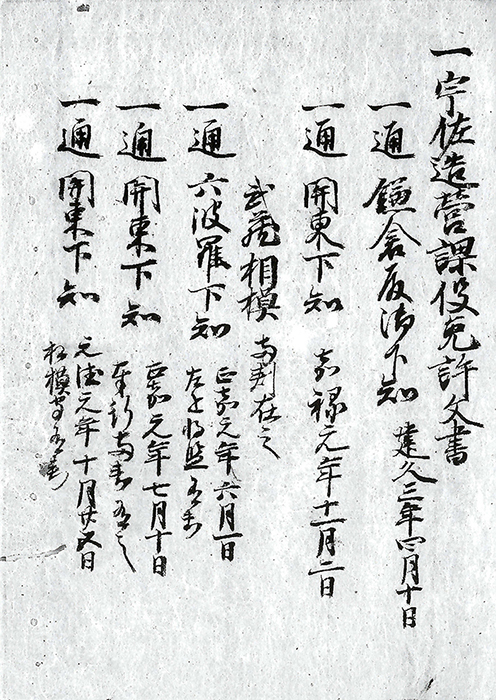 一宇佐造営課役免許文書
一通 鎌倉殿御下知 建久三年四月十日
一通 関東下知 嘉禄元年十一月二日
武蔵相模両判在之
一通 六波羅下知 正嘉元年六月一日
左近将監
一通 関東下知 正嘉元年七月十日
両
一通 関東下知 元徳元年十月廿五日
相模守